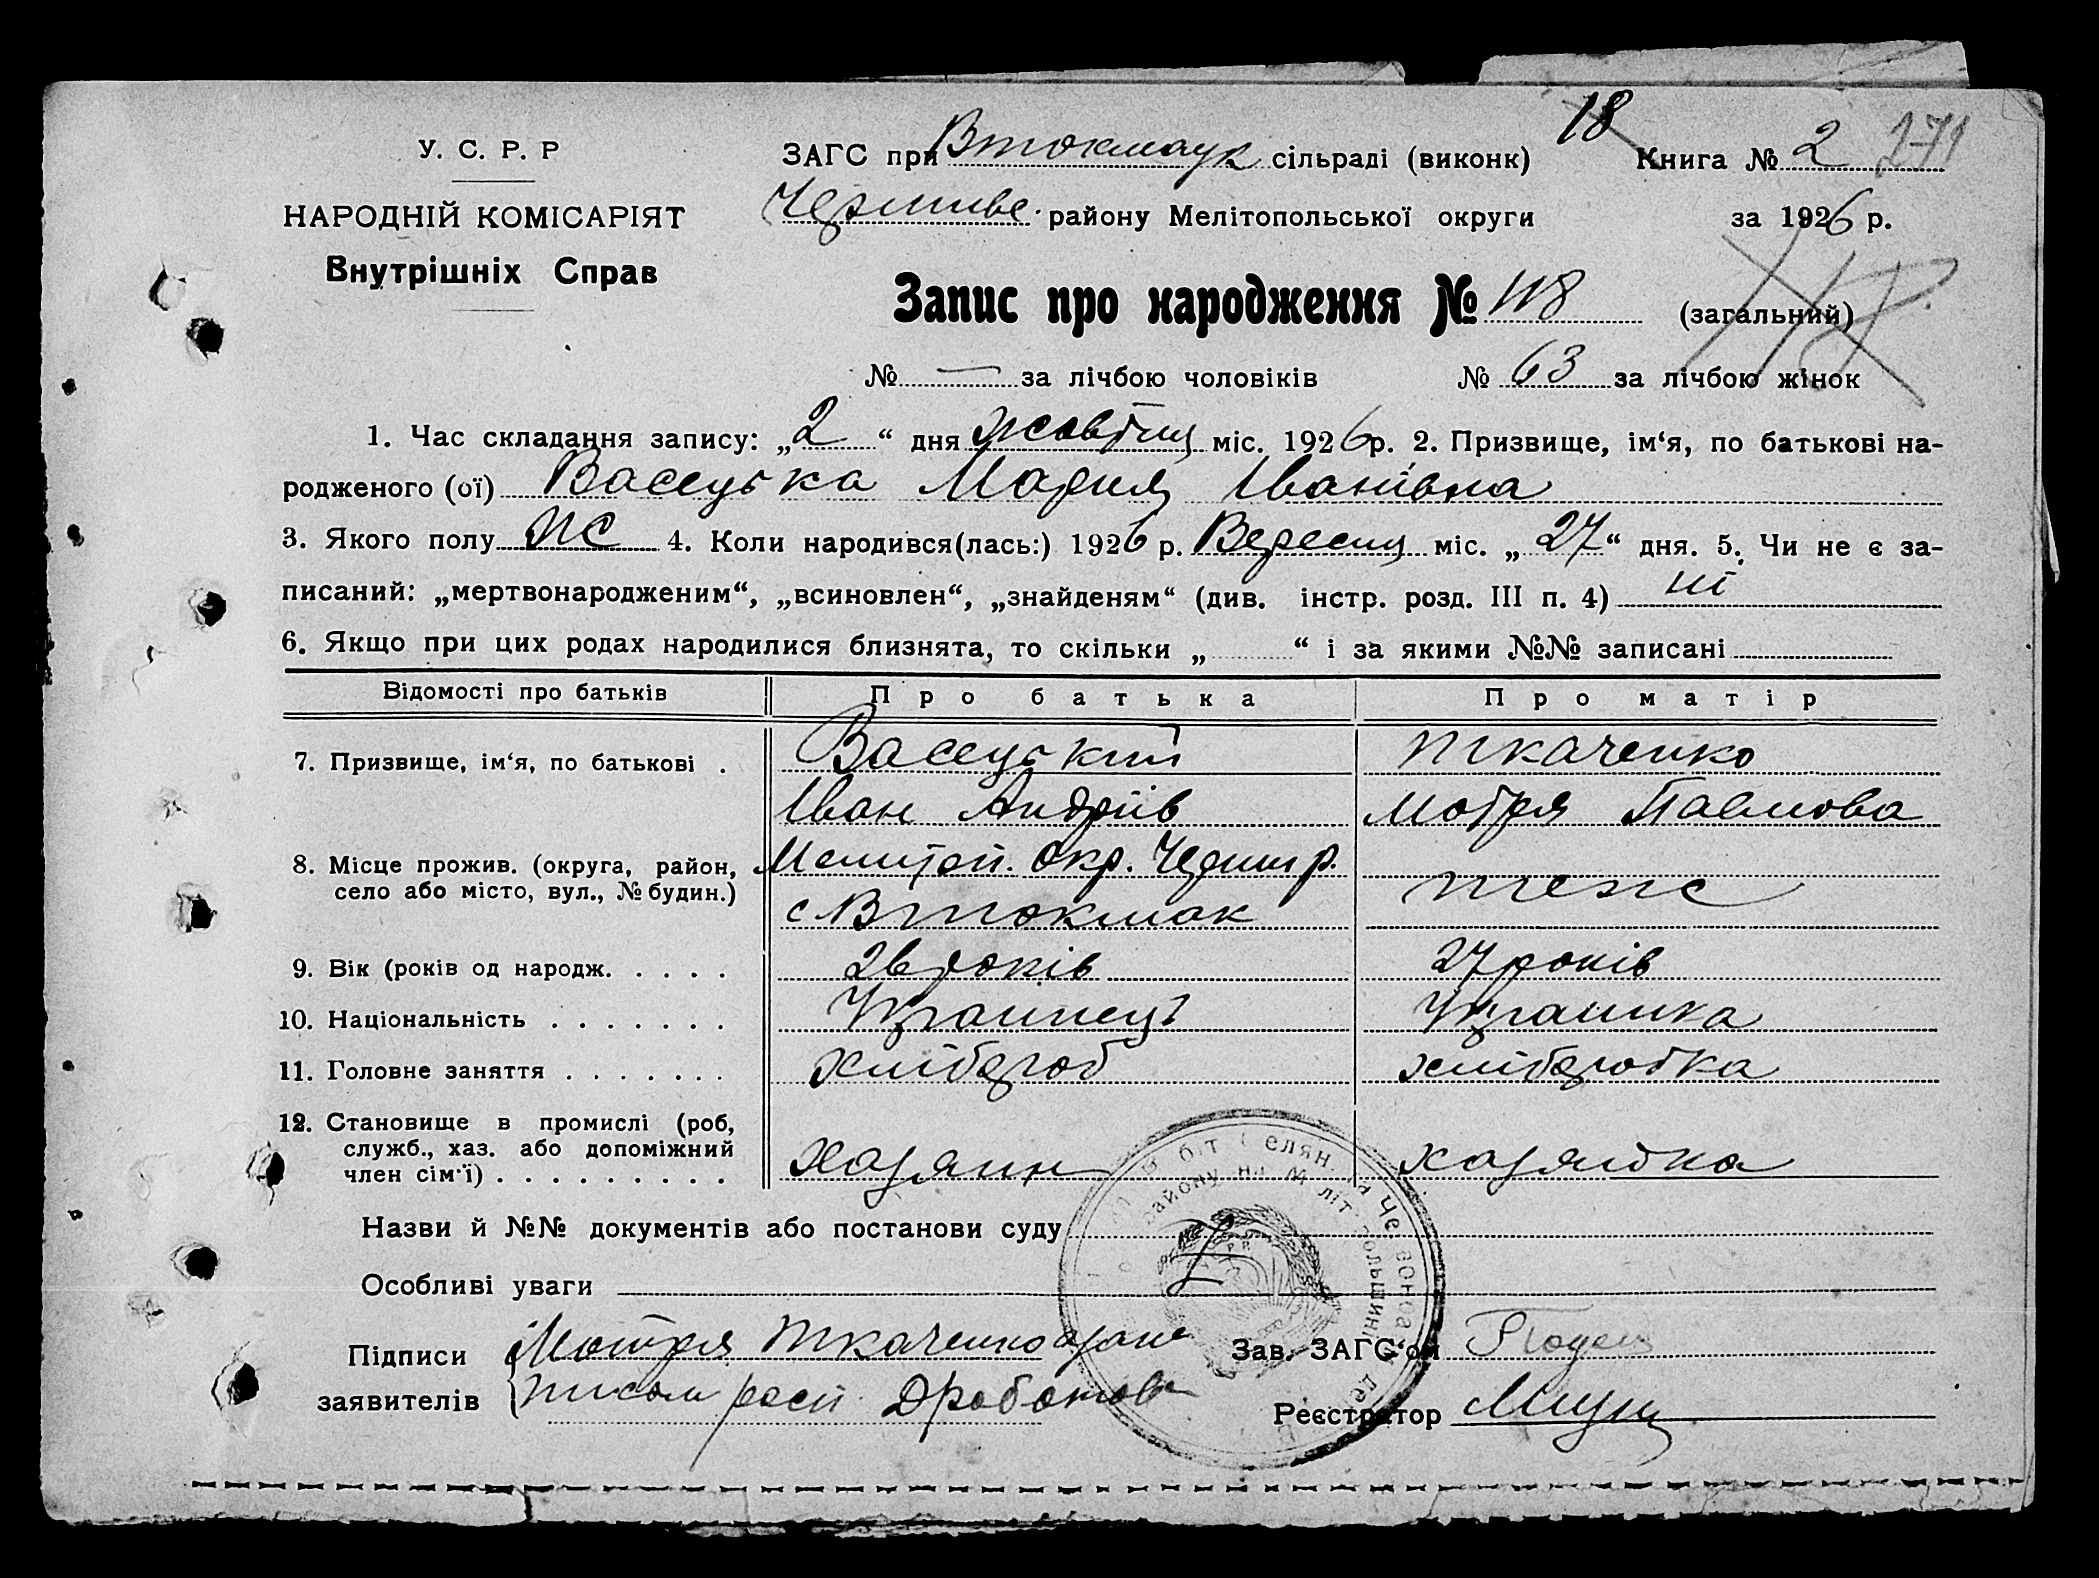 У. С. Р. Р
НАРОДНІЙ КОМІСАРІЯТ
Внутрішніх Справ
18
ЗАГС при Втокмацк сільраді (виконк) Книга № 2 271
району Мелітопольської округи за 1926 р.
Запис про народження № 118 (загальний) 118
№ — за лічбою чоловіків № 63 за лічбою жінок
1. Час складання запису: „2“ дня жовтня міс. 1926 р. 2. Призвище, ім‘я, по батькові на-
родженого (ої) Васецька Мария Іванівна
3. Якого полу ж 4. Коли народився(лась:) 1926 р. Вересня міс. „27“ дня. 5. Чи не є за-
писаний: „мертвонародженим“, „всиновлен“, „знайденям“ (див. інстр. розд. III п. 4) ні
6. Якщо при цих родах народилися близнята, то скільки „ “ і за якими №№ записані
Відомості про батьків Про батька Про матір
7. Призвище, ім‘я, по батькові . Васецький Ткаченко
Іван Андріїв Мотря Павлова
8. Місце прожив. (округа, район, село або місто, вул., № будин.) Мелитоп. окр. р.
с Втокмак теж
9. Вік (років од народж. . . . . 26 років 27 років
10. Національність . . . . . . . Українець Украинка
11. Головне заняття . . . . . . . хлібороб хліборобка
12. Становище в промислі (роб, служб., хаз. або допоміжний член сім‘ї) . . . . . . . . . хазяин хазяйка
Назви й №№ документів або постанови суду
Особливі уваги
Підписи заявителів Мотря Ткаченко
Зав. ЗАГС‘ом
Реєстратор